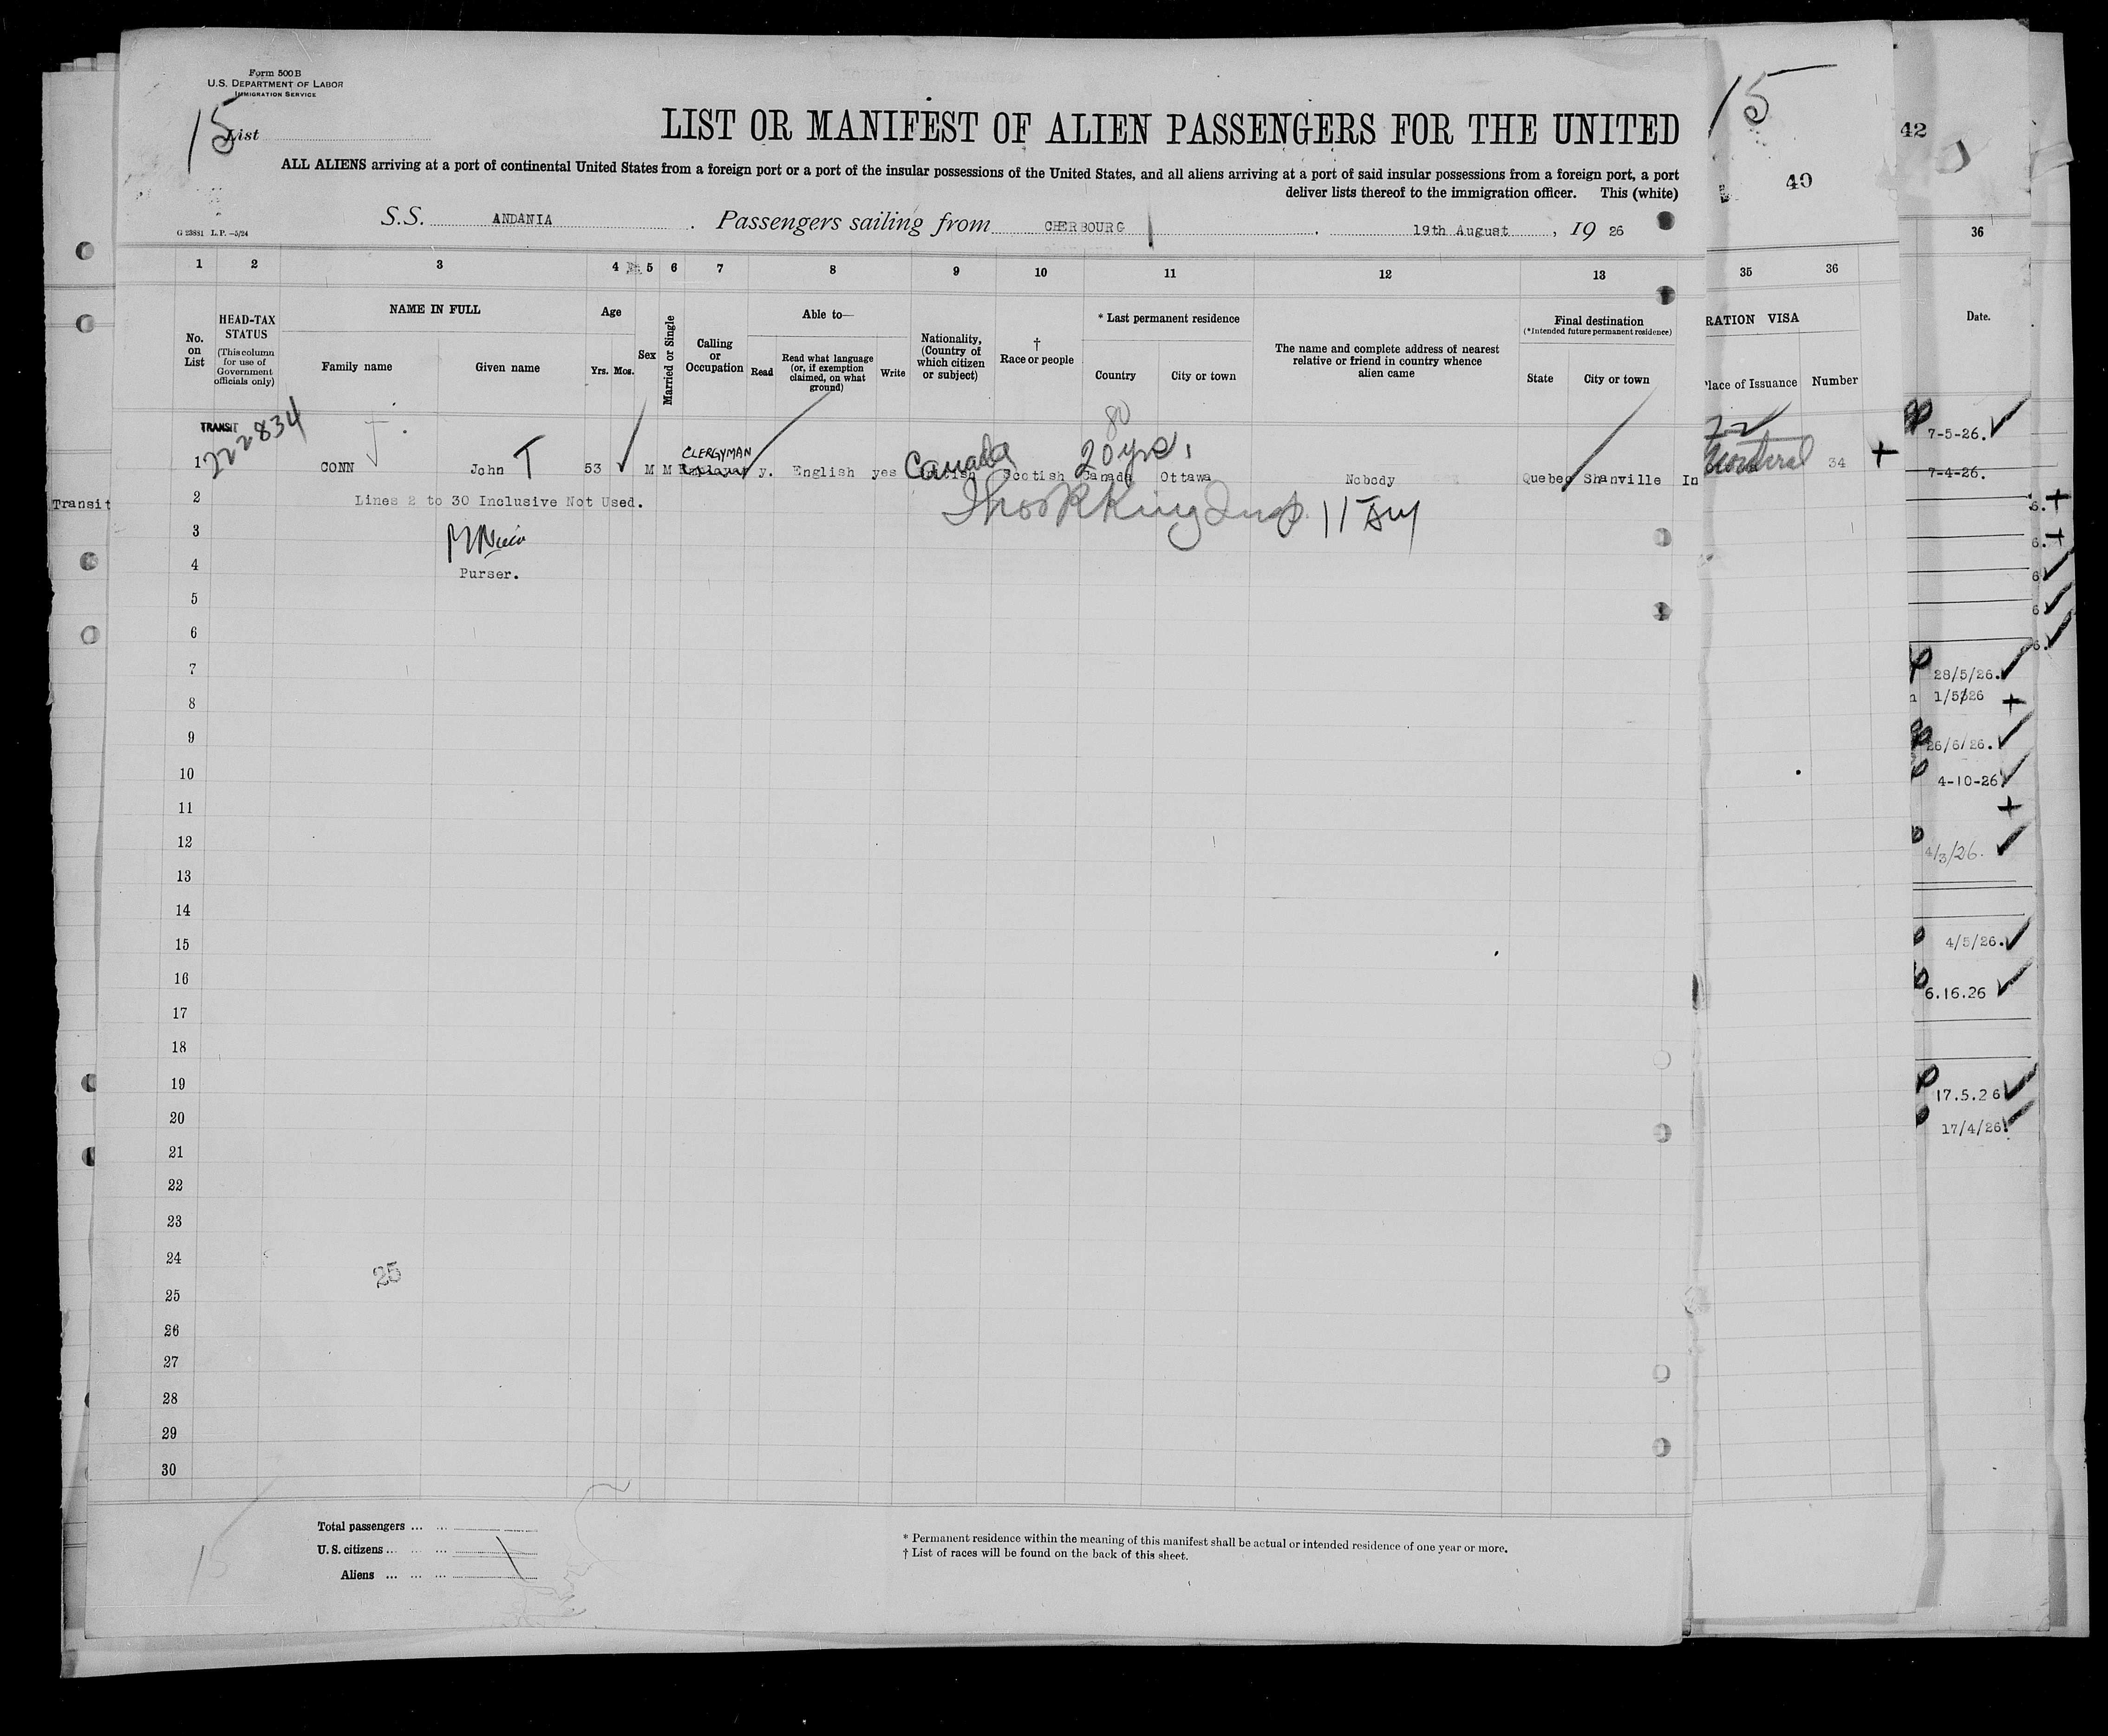 Form 500 B
U.S. DEPARTMENT OF LABOR
IMMIGRATION SERVICE
15
List
LIST OR MANIFEST OF ALIEN PASSENGERS FOR THE UNITED
ALL ALIENS arriving at a port of continental United States from a foreign port or a port of the insular possessions of the United States, and all aliens arriving at a port of said insular possessions from a foreign port, a port
deliver lists thereof to the immigration officer. This (white)
S.S. ANDANIA. Passengers sailing from CHERBOURG, 19th August, 1926
G 23881 L.P.—5/24
1 2 3 4 5 6 7 8 9 10 11 12 13
No. on List
HEAD-TAX STATUS
(This column for use of Government officials only)
NAME IN FULL
Family name
Given name
Age
Yrs. Mos.
Sex
Married or Single
Calling or Occupation
Able to—
Read
Read what language (or, if exemption claimed, on what ground)
Write
Nationality, (Country of which citizen or subject)
† Race or people
* Last permanent residence
Country
City or town
The name and complete address of nearest relative or friend in country whence alien came
Final destination
(*Intended future permanent residence)
State
City or town
TRANSIT
222834
80
CLERGYMAN
Canada
20 yrs.
1 CONN John T 53 M M y. English yes Scotish Canada Ottawa Nobody Quebec Shanville In
2 Lines 2 to 30 Inclusive Not Used.
3
4 Purser.
5
6
7
8
9
10
11
12
13
14
15
16
17
18
19
20
21
22
23
24
25
25
26
27
28
29
30
15
Total passengers ... ...
U.S. citizens... ... ...
Aliens ... ... ...
* Permanent residence within the meaning of this manifest shall be actual or intended residence of one year or more.
† List of races will be found on the back of this sheet.
Transit
15
40
35 36
RATION VISA
Place of Issuance Number
22
Montreal 34 +
42
36
Date.
7-5-26.
7-4-26.
6.
6.
6
6
6.
28/5/26.
1/5/26
26/6/26.
4-10-26
4/3/26.
4/5/26.
6.16.26
17.5.26
17/4/26